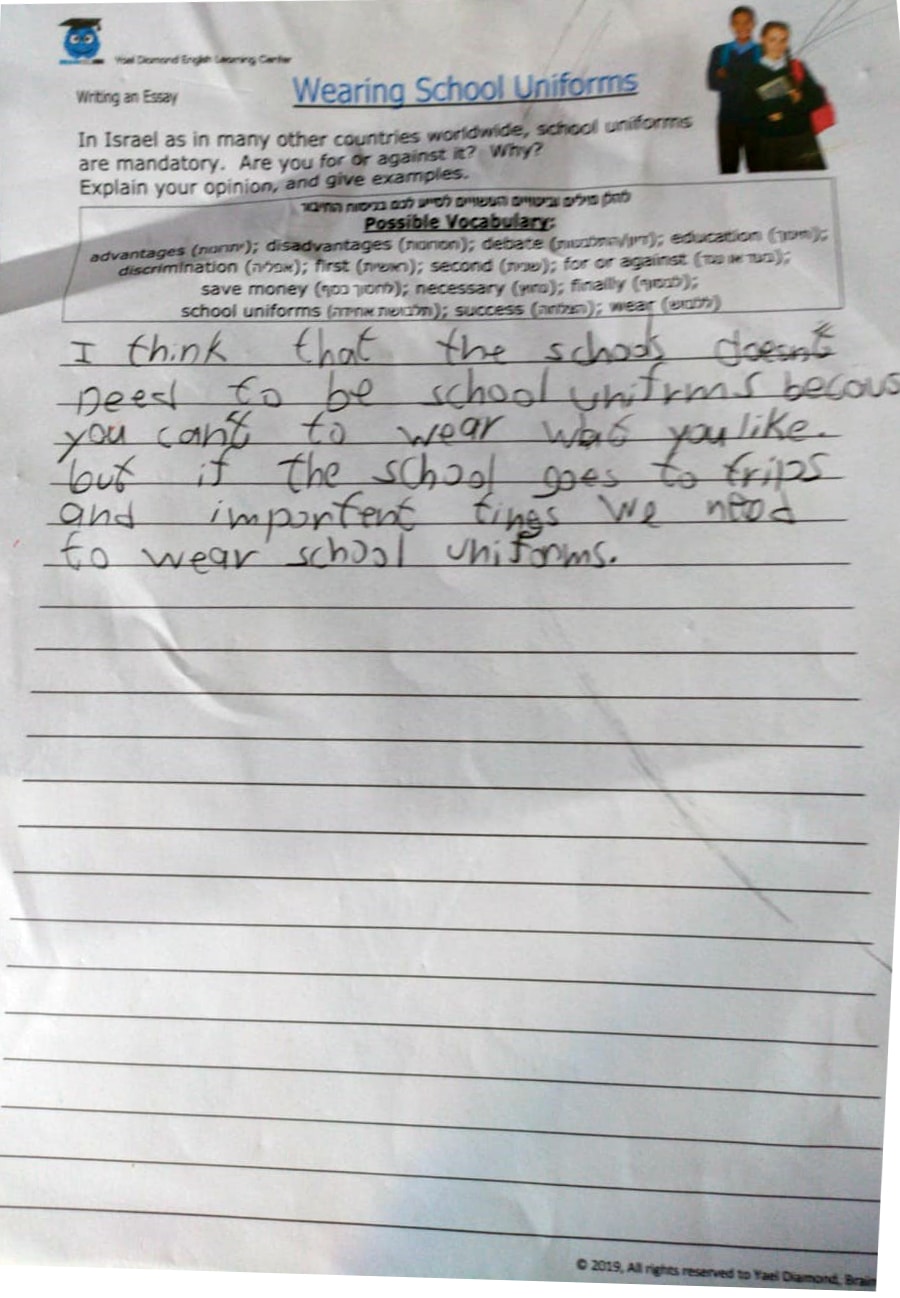 Yael Diamond English Learning Center
Writing an Essay
Wearing School Uniforms
In Israel as in many other countries worldwide, school uniforms
are mandatory. Are you for or against it? Why?
Explain your opinion, and give examples.
להלן מילים וביטויים העשויים לסייע לכם בכתיבת החיבור
Possible Vocabulary:
advantages (יתרונות); disadvantages (חסרונות); debate (דיון/התלבטות); education (חינוך);
discrimination (אפליה); first (ראשית); second (שנית); for or against (בעד או נגד);
save money (לחסוך כסף); necessary (נחוץ); finally (לבסוף);
school uniforms (תלבושת אחידה); success (הצלחה); wear (ללבוש)
I think that the school doesn't
need to be school unifrms becous
you can't to wear wat you like.
but if the school goes to trips
and importent tings we need
to wear school uniforms.
© 2019, All rights reserved to Yael Diamond, Brain